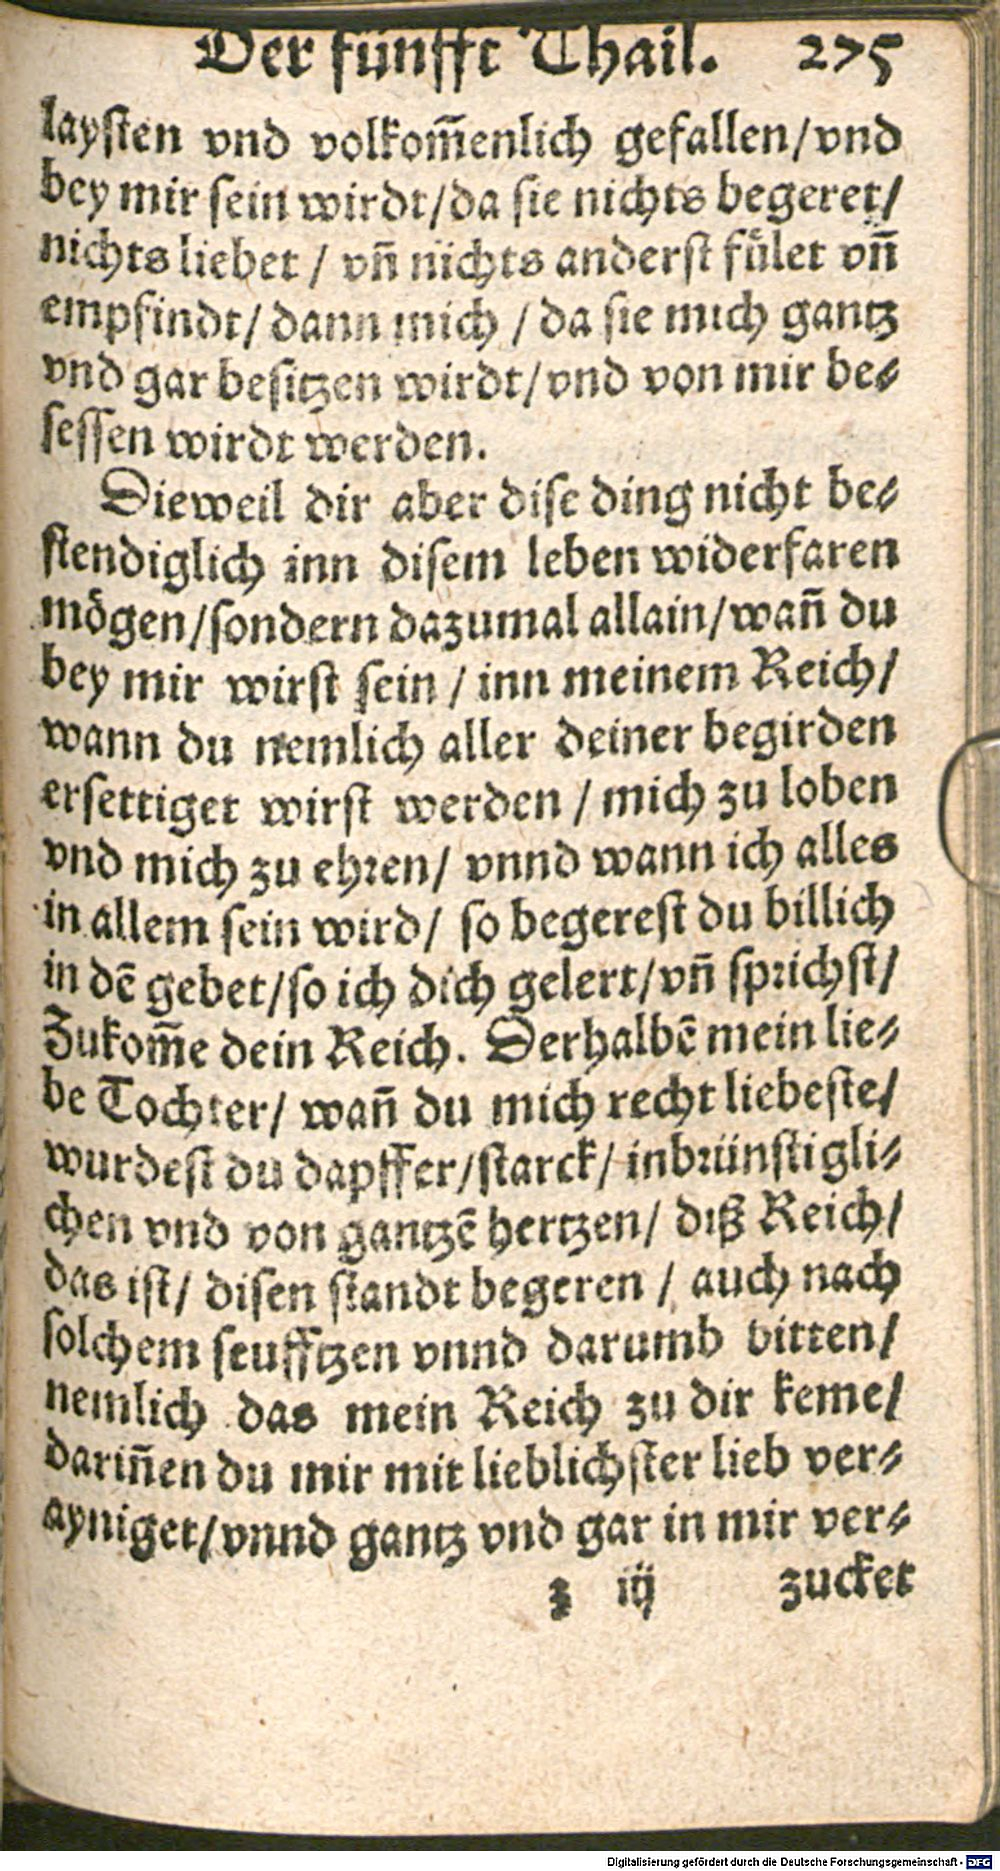 Der fünfft Thail. 275
laysten vnd volkom̄enlich gefallen/vnd
bey mir sein wirdt/da sie nichts begeret/
nichts liebet / vn̄ nichts anderst fu̎let vn̄
empfindt/ dann mich / da sie mich gantz
vnd gar besitzen wirdt/vnd von mir be⸗
sessen wirdt werden.
Dieweil dir aber dise ding nicht be⸗
stendiglich inn disem leben widerfaren
mögen/sondern dazumal allain/wan̄ du
bey mir wirst sein / inn meinem Reich/
wann du nemlich aller deiner begirden
ersettiget wirst werden / mich zu loben
vnd mich zu ehren/ vnnd wann ich alles
in allem sein wird/ so begerest du billich
in dē gebet/so ich dich gelert/vn̄ sprichst/
Zukom̄e dein Reich. Derhalbē mein lie⸗
be Tochter/ wan̄ du mich recht liebeste/
wurdest du dapffer/starck/ inbrünstigli⸗
chen vnd von gantzē hertzen/ diß Reich/
das ist/ disen standt begeren / auch nach
solchem seufftzen vnnd darumb bitten/
nemlich das mein Reich zu dir keme/
darin̄en du mir mit lieblichster lieb ver⸗
ayniget/vnnd gantz vnd gar in mir ver⸗
z iij zucket
Digitalisierung gefördert durch die Deutsche Forschungsgemeinschaft - DFG